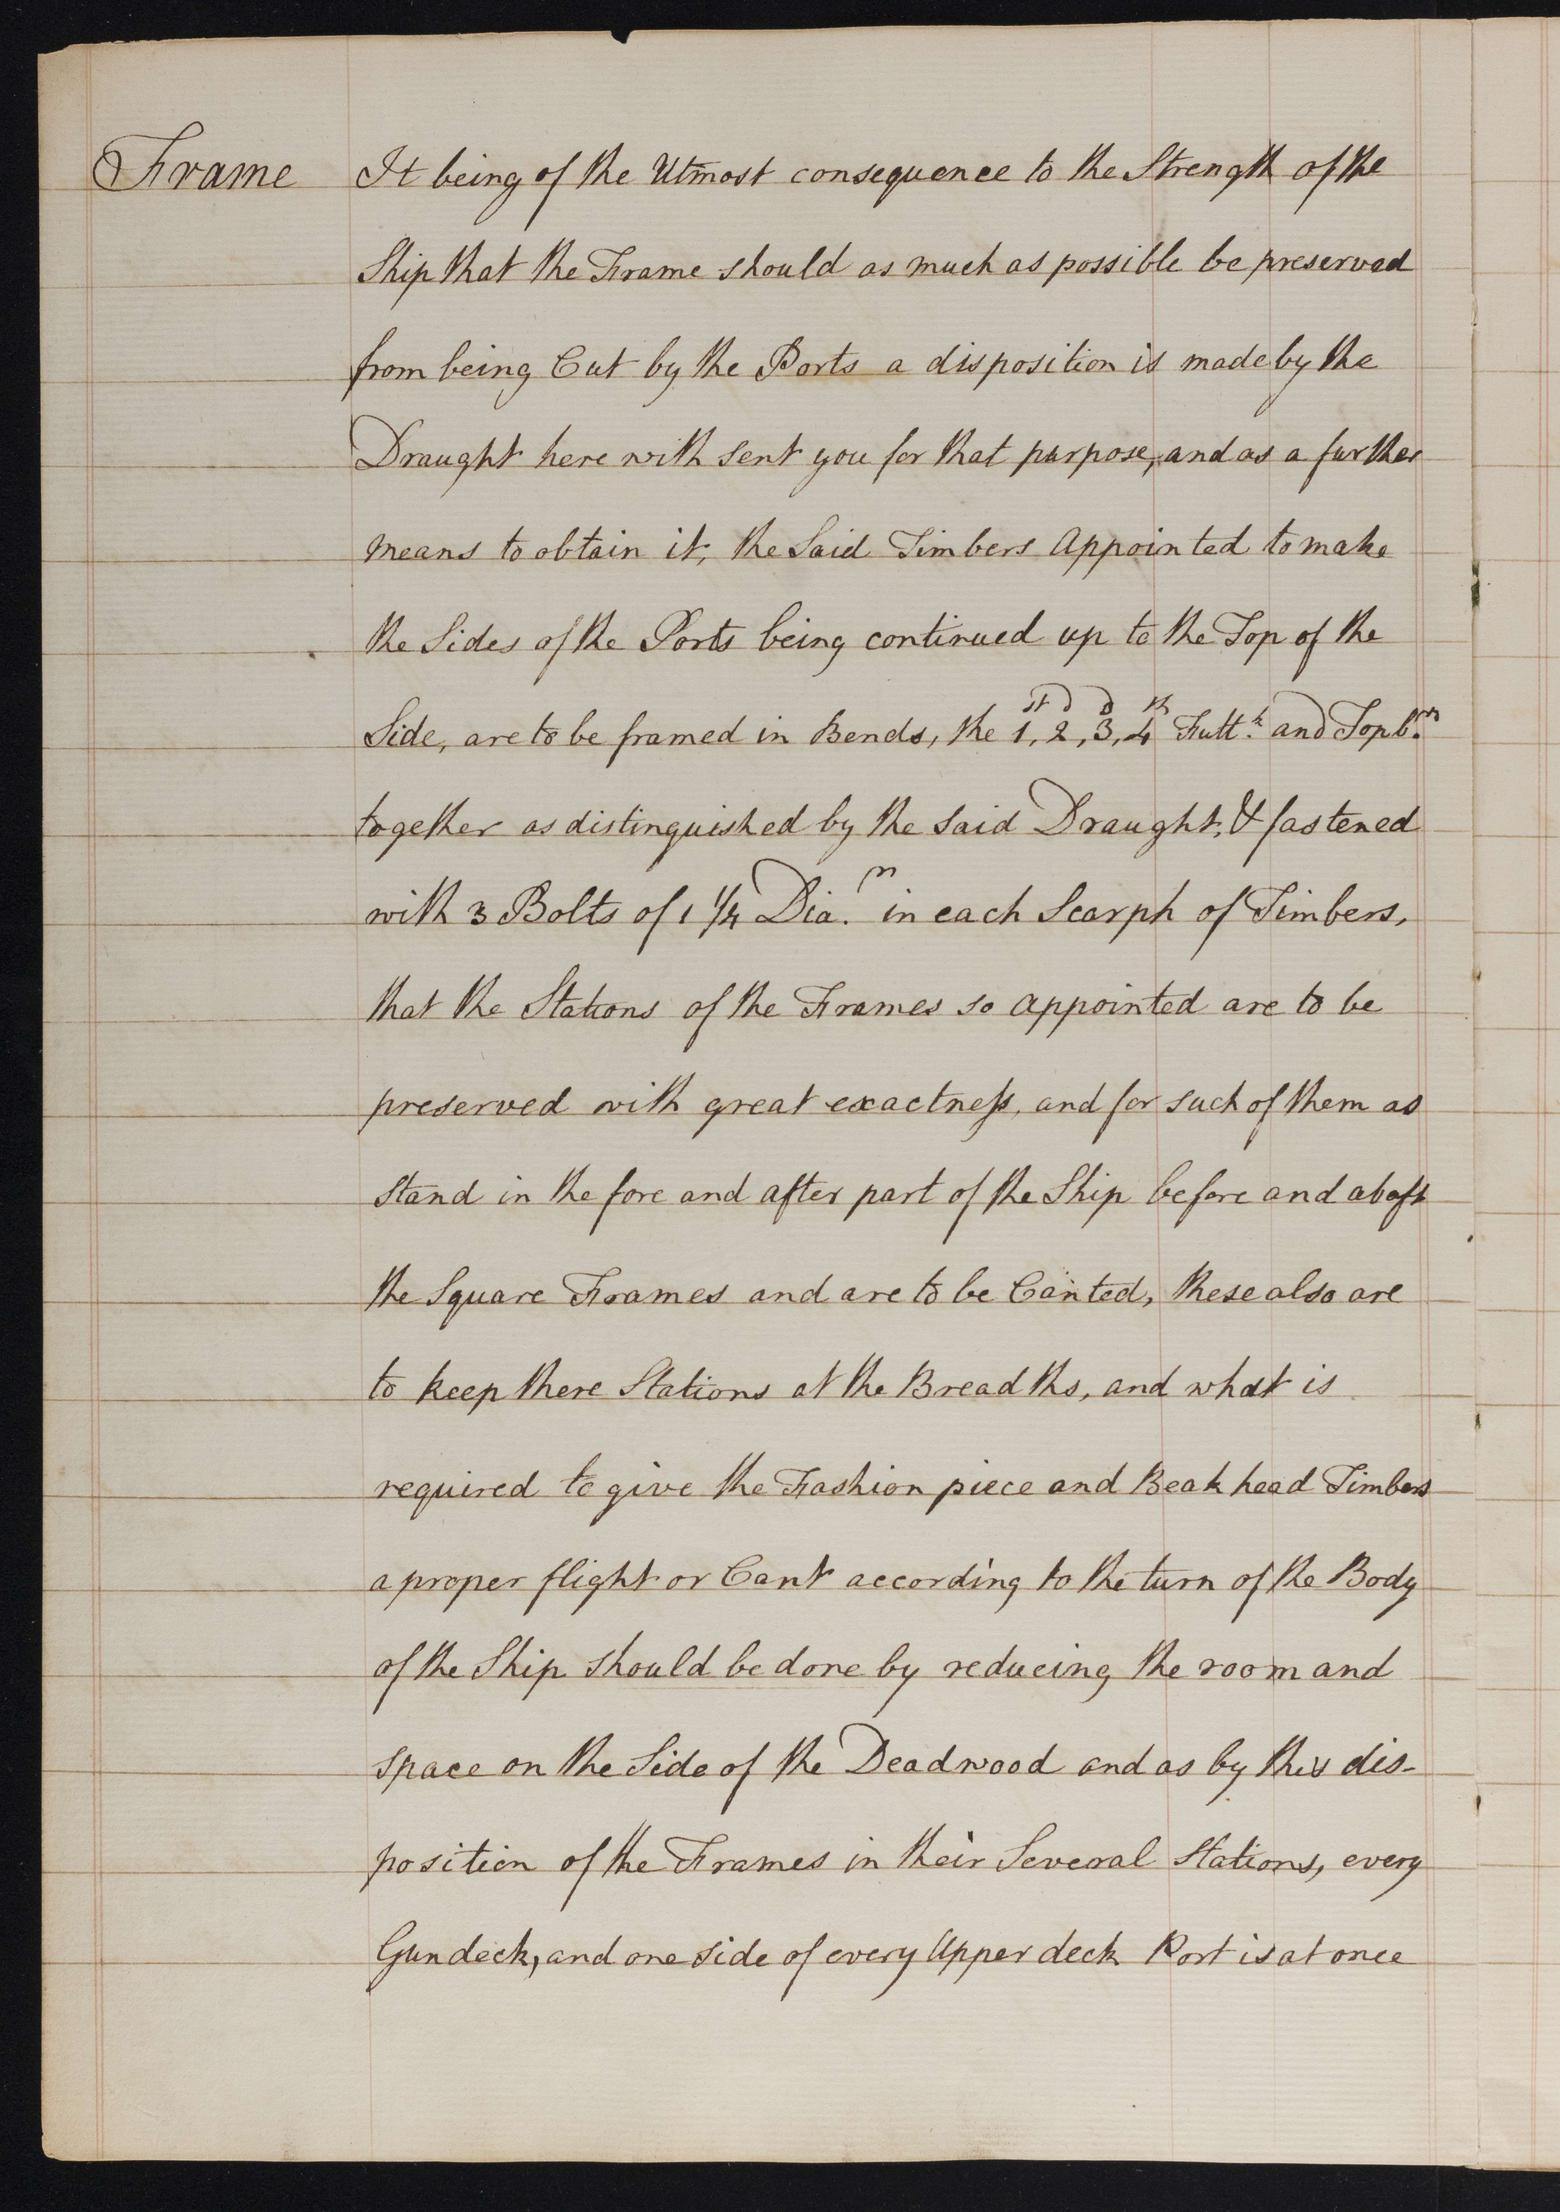 Frame It being of the Utmost consequence to the Strength of the
Ship that the Frame should as much as possible be preserved
from being Cut by the Ports a disposition is made by the
Draught here with sent you for that purpose, and as a further
means to obtain it, the Said Timbers Appointed to make
the Sides of the Ports being continued up to the Top of the
Side, are to be framed in Bends, the 1st, 2d, 3d, 4th Futtk. and Topbrs.
together as distinguished by the said Draught, & fastened
with 3 Bolts of 1 1/4 Dia.m in each Scarph of Timbers,
that the Stations of the Frames so appointed are to be
preserved with great exactness, and for such of them as
stand in the fore and after part of the Ship before and abaft
the Square Frames and are to be Canted, these also are
to keep there Stations at the Breadths, and what is
required to give the Fashion piece and Beak head Timbers
a proper flight or Cant according to the turn of the Body
of the Ship should be done by reducing the room and
space on the Side of the Deadwood and as by this dis-
position of the Frames in their Several Stations, every
Gundeck, and one side of every Upper deck Port is at once